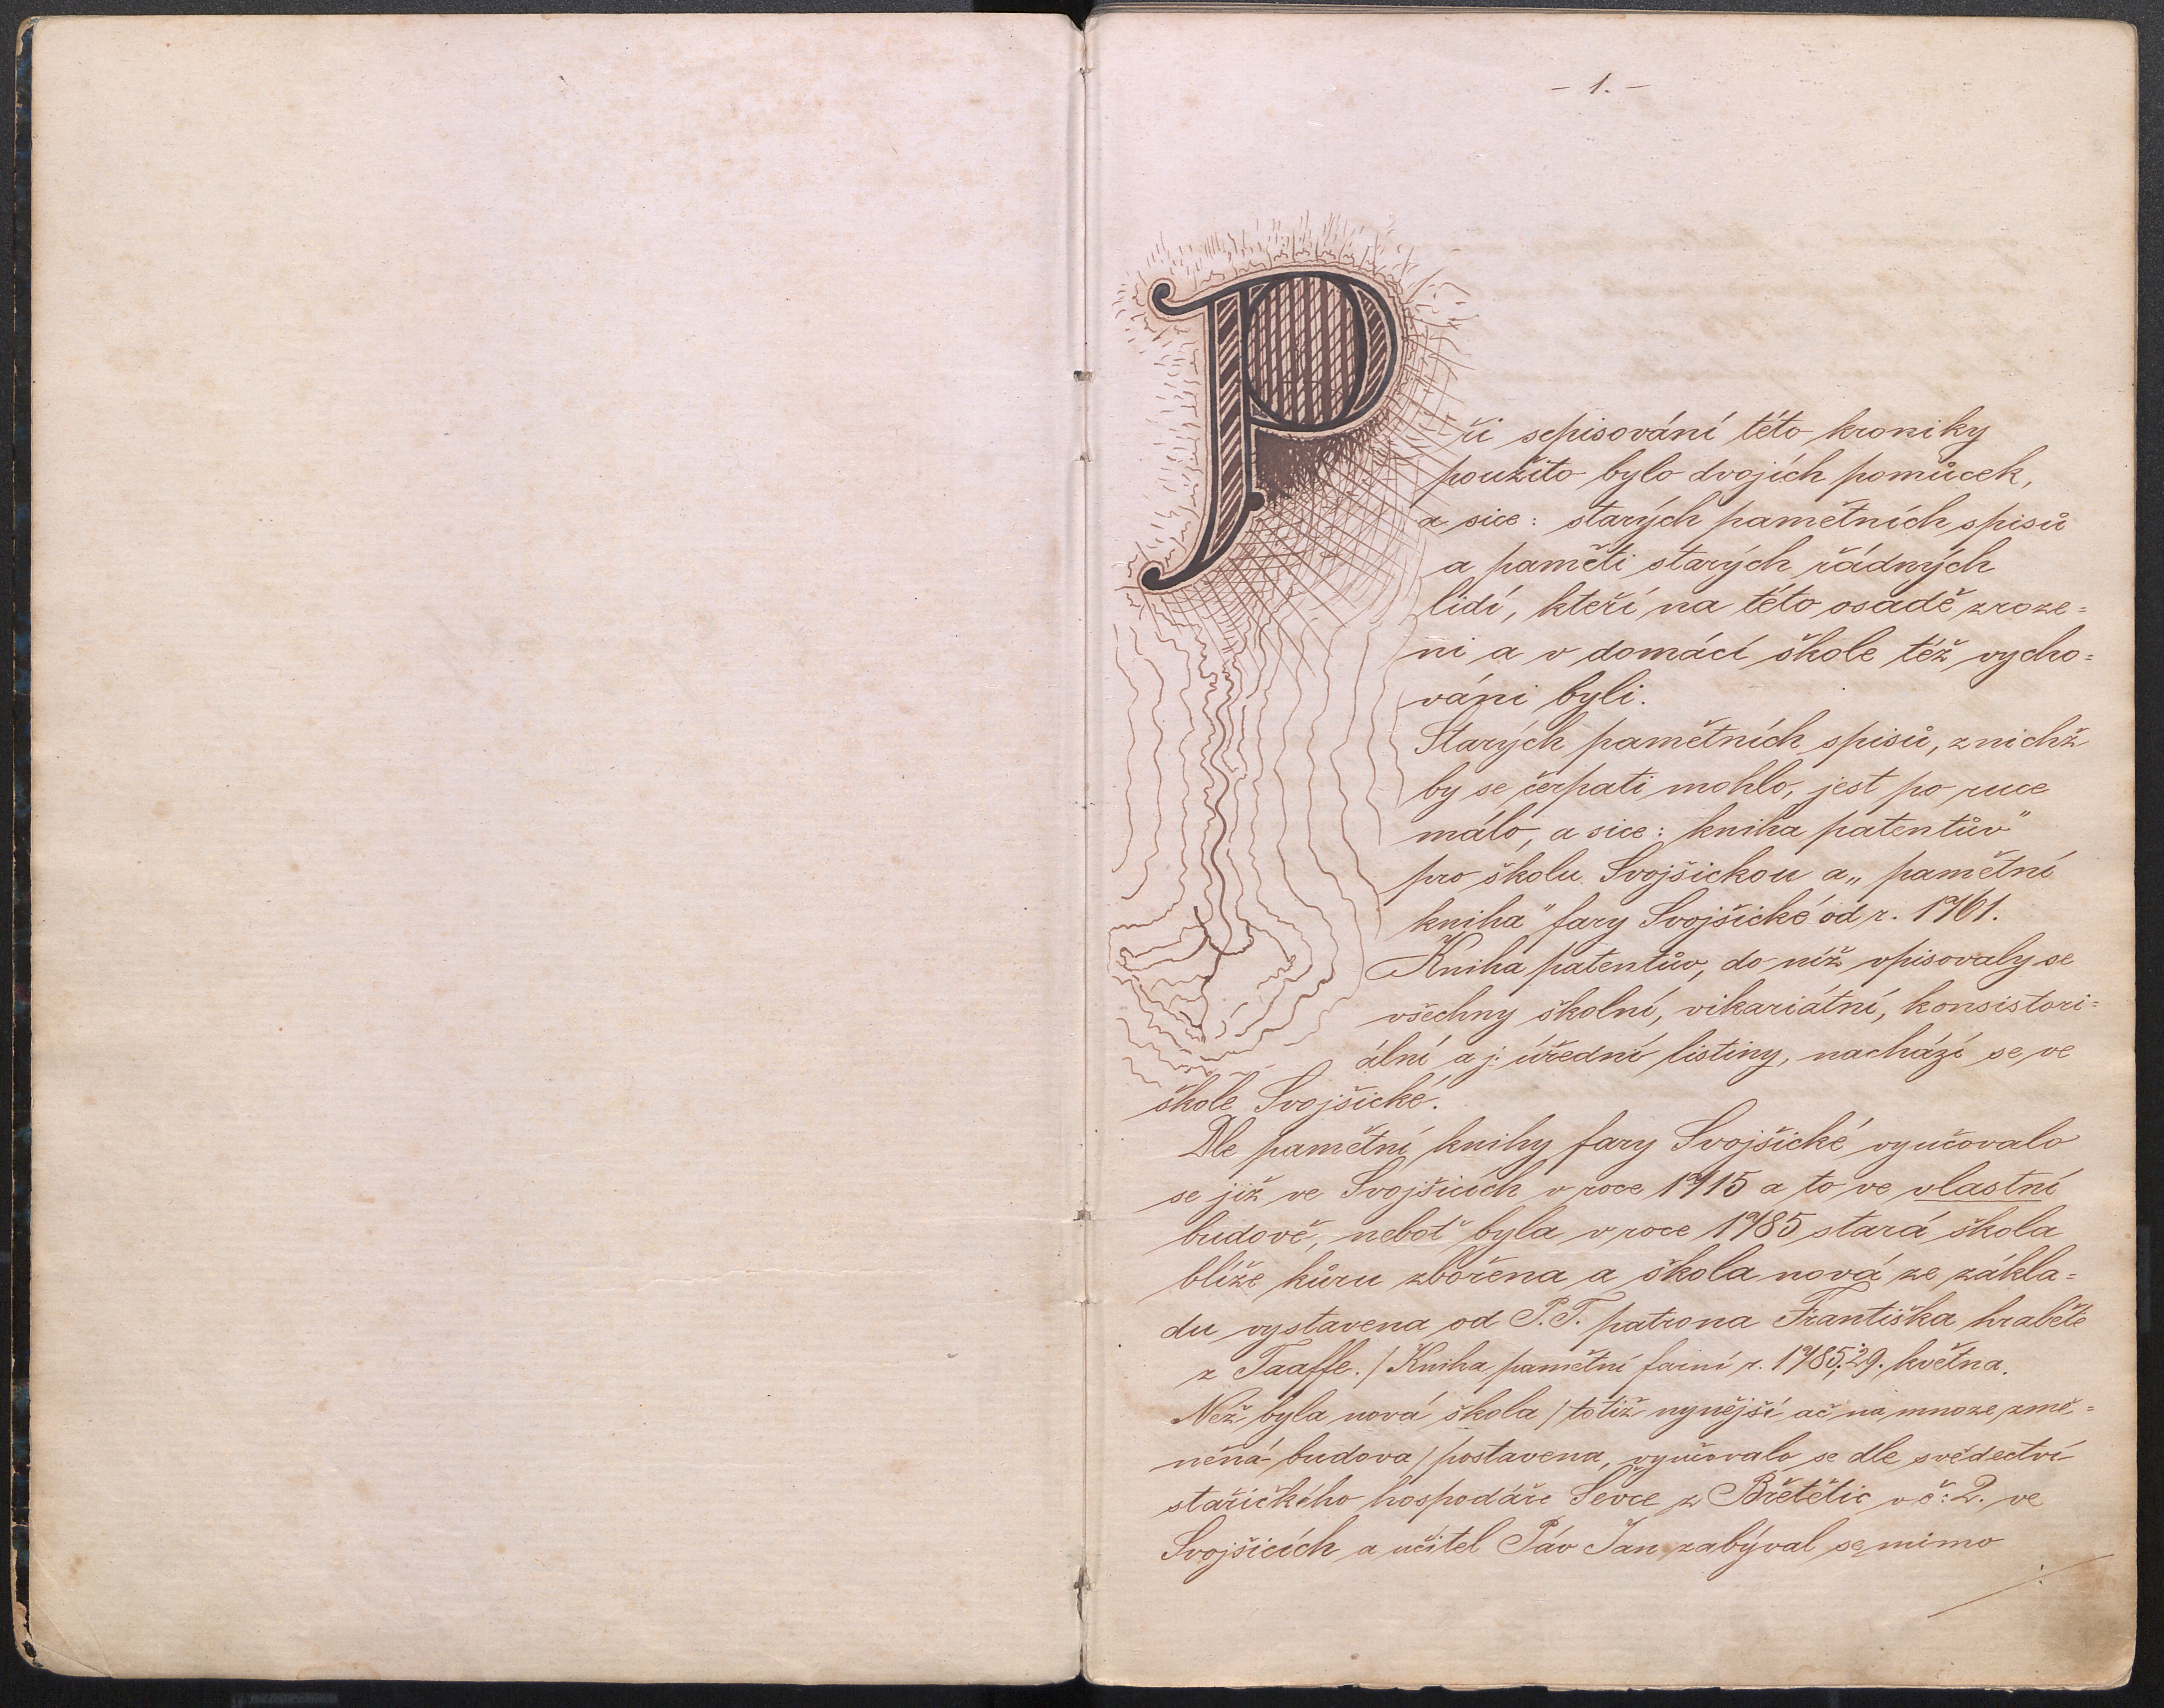 - 1. -
Při sepisování této kroniky
použito bylo dvojích pomůcek,
a sice: starých pamětních spisů
a paměti starých řádných
lidí, kteří na této osadě zroze=
ni a v domácí škole též vycho=
váni byli.
Starých pamětních spisů, z nichž
by se čerpati mohlo, jest po ruce
málo, a sice: kniha patentův"
pro školu Svojšickou a „pamětní
kniha" fary Svojšické od r. 1761.
Kniha patentův, do níž vpisovaly se
všechny školní, vikariátní, konsistori=
ální a j. úřední listiny, nachází se ve
škole Svojšické.
Dle pamětní knihy fary Svojšické vyučovalo
se již ve Svojšicích v roce 1715 a to ve vlastní
budově, neboť byla v roce 1785 stará škola
blíže kůru zbořena a škola nová ze zákla=
du vystavena od P. T. patrona Františka hraběte
z Taaffe. / Kniha pamětní farní r. 1785, 29. května.
Než byla nová škola / totiž nynější ač na mnoze změ=
něná budova / postavena, vyučovalo se dle svědectví
stařičkého hospodáře Ševce z Břetětic v č: 2. ve
Svojšicích a učitel Páv Jan zabýval se mimo
./.